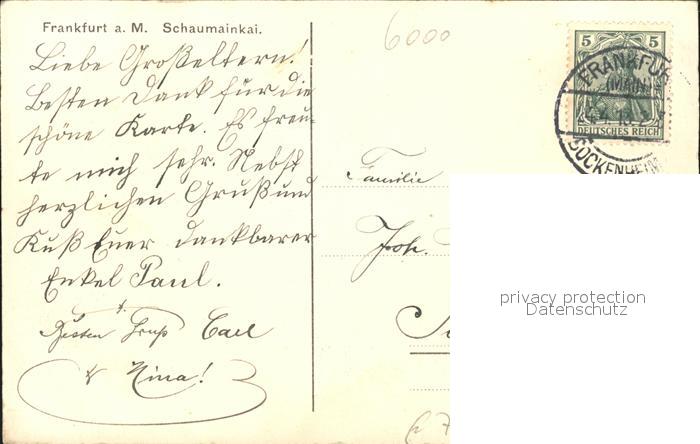 Frankfurt a. M. Schaumainkai.
Liebe Großeltern!
Besten Dank für die
schöne Karte. Es freu-
te mich sehr. Nebst
herzlichen Gruß und
Kuß Euer dankbarer
Enkel Paul.
Besten Gruß Carl
& Nina!
6000
5 5
DEUTSCHES REICH
FRANKFUR
(MAIN)
BOCKENHEIM
Familie
Joh.
privacy protection
Datenschutz